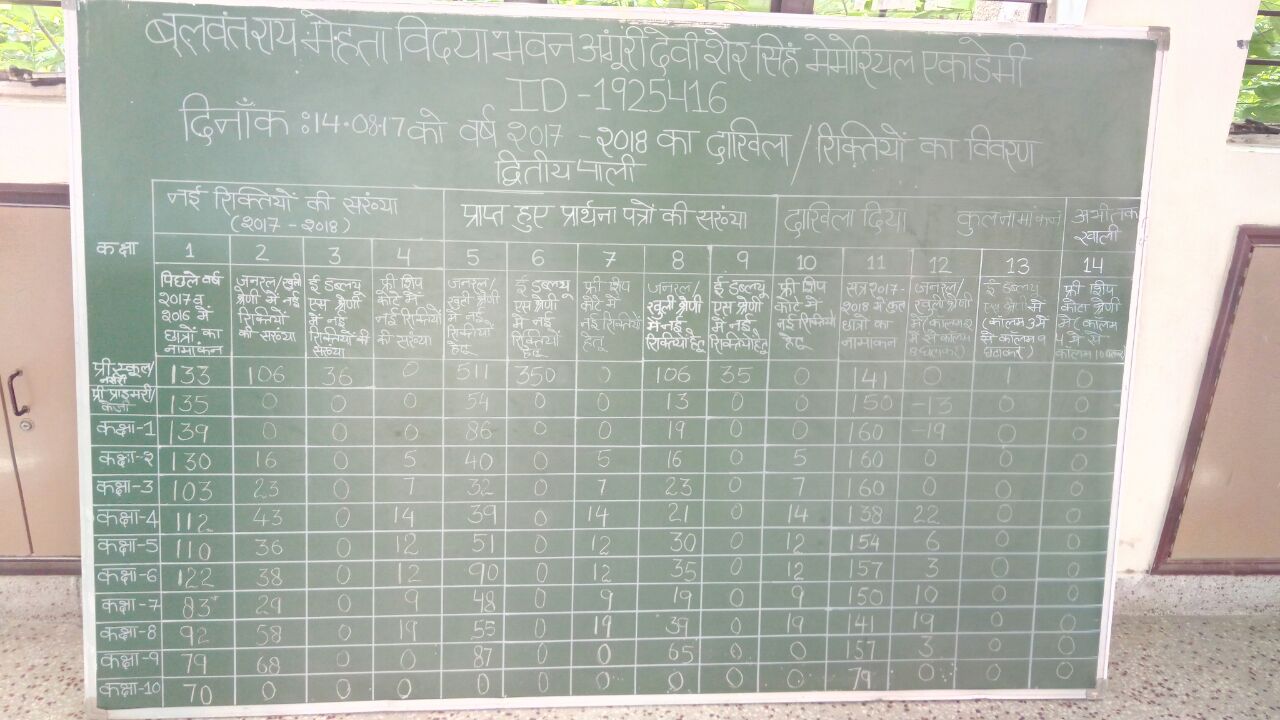 बलवंतराय मेहता विद्या भवन अंगूरी देवी शेर सिंह मेमोरियल एकाडेमी
ID-1925416
दिनाँक :14.08.17 को वर्ष २०17 - २०18 का दाखिला / रिक्तियों का विवरण
द्वितीय पाली
नई रिक्तियों की सरंख्या (२०17 - २०18) प्राप्त हुए प्रार्थना पत्रों की सरंख्या दाखिला दिया कुलनामांकन अभीतक खाली
कक्षा 1 2 3 4 5 6 7 8 9 10 11 12 13 14
पिछले वर्ष 2017 व 2016 में छात्रों का नामांकन
जनरल/खुली श्रेणी में नई रिक्तियों की सरंख्या
ई डब्ल्यू एस श्रेणी में नई रिक्तियों की सरंख्या
फ्री शिप कोटे में नई रिक्तियों की सरंख्या
जनरल/खुली श्रेणी में नई रिक्तियों हेतू
ई डब्ल्यू एस श्रेणी में नई रिक्तियों हेतू
फ्री शिप कोटे में नई रिक्तियों हेतू
जनरल/खुली श्रेणी में नई रिक्तियों हेतू
ई डब्ल्यू एस श्रेणी में नई रिक्तियों हेतू
फ्री शिप कोटे में नई रिक्तियों हेतू
सत्र 2017-2018 में कुल छात्रों का नामांकन
जनरल/खुली श्रेणी में (कालम 2 में से कालम 8 घटाकर)
ई डब्ल्यू एस श्रेणी में (कालम 3 में से कालम 9 घटाकर)
फ्री शिप कोटा श्रेणी में (कालम 4 में से कालम 10
प्री स्कूल/नर्सरी 133 106 36 0 511 350 0 106 35 0 141 0 1 0
प्री प्राइमरी/केजी 135 0 0 0 54 0 0 13 0 0 150 -13 0 0
कक्षा-1 139 0 0 0 86 0 0 19 0 0 160 -19 0 0
कक्षा-२ 130 16 0 5 40 0 5 16 0 5 160 0 0 0
कक्षा-3 103 23 0 7 32 0 7 23 0 7 160 0 0 0
कक्षा-4 112 43 0 14 39 0 14 21 0 14 138 22 0 0
कक्षा-5 110 36 0 12 51 0 12 30 0 12 154 6 0 0
कक्षा-6 122 38 0 12 90 0 12 35 0 12 157 3 0 0
कक्षा-7 83 29 0 9 48 0 9 19 0 9 150 10 0 0
कक्षा-8 92 58 0 19 55 0 19 39 0 19 141 19 0 0
कक्षा-9 79 68 0 0 87 0 0 65 0 0 157 3 0 0
कक्षा-10 70 0 0 0 0 0 0 0 0 0 79 0 0 0